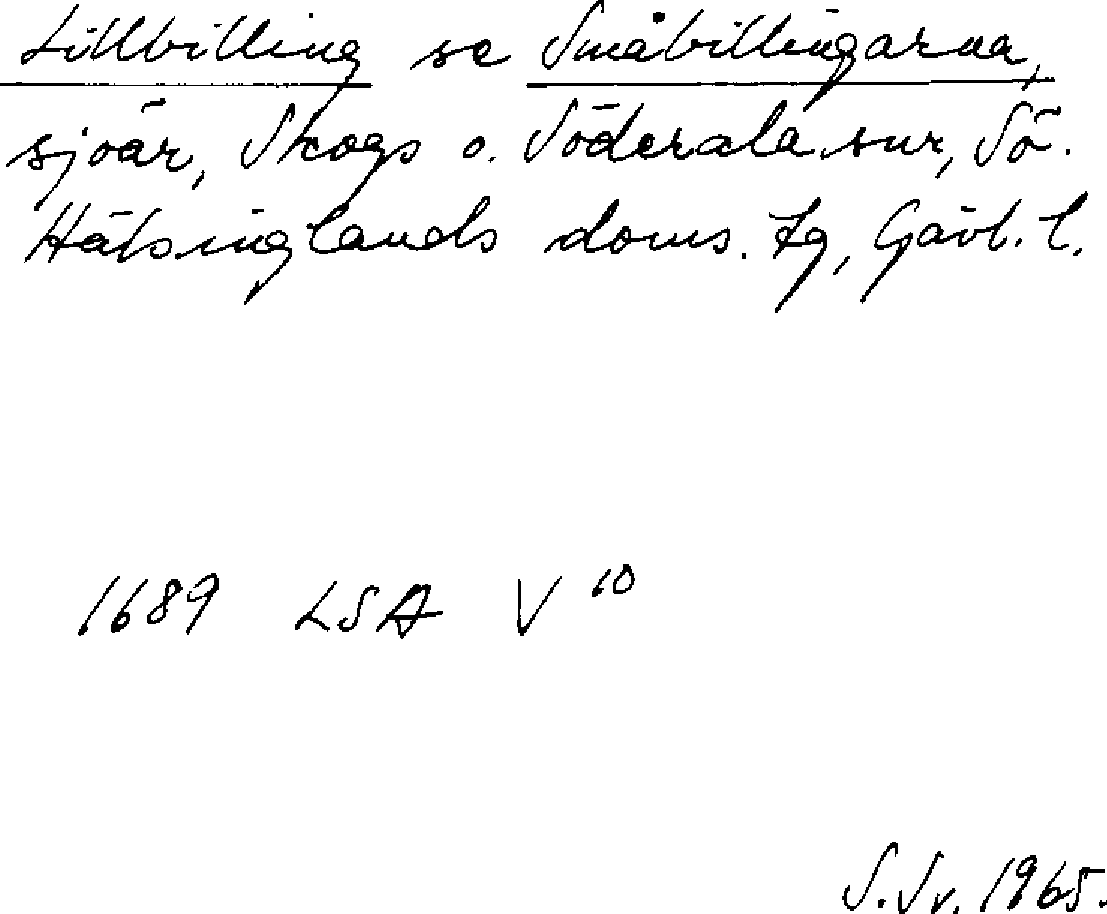 Lillbilling se Småbillingarna,
sjöar, Skogs o. Söderala snr, Sö.
Hälsinglands doms. tg, Gävl. l.
1689 LSA V 10
S. Sv. 1965.